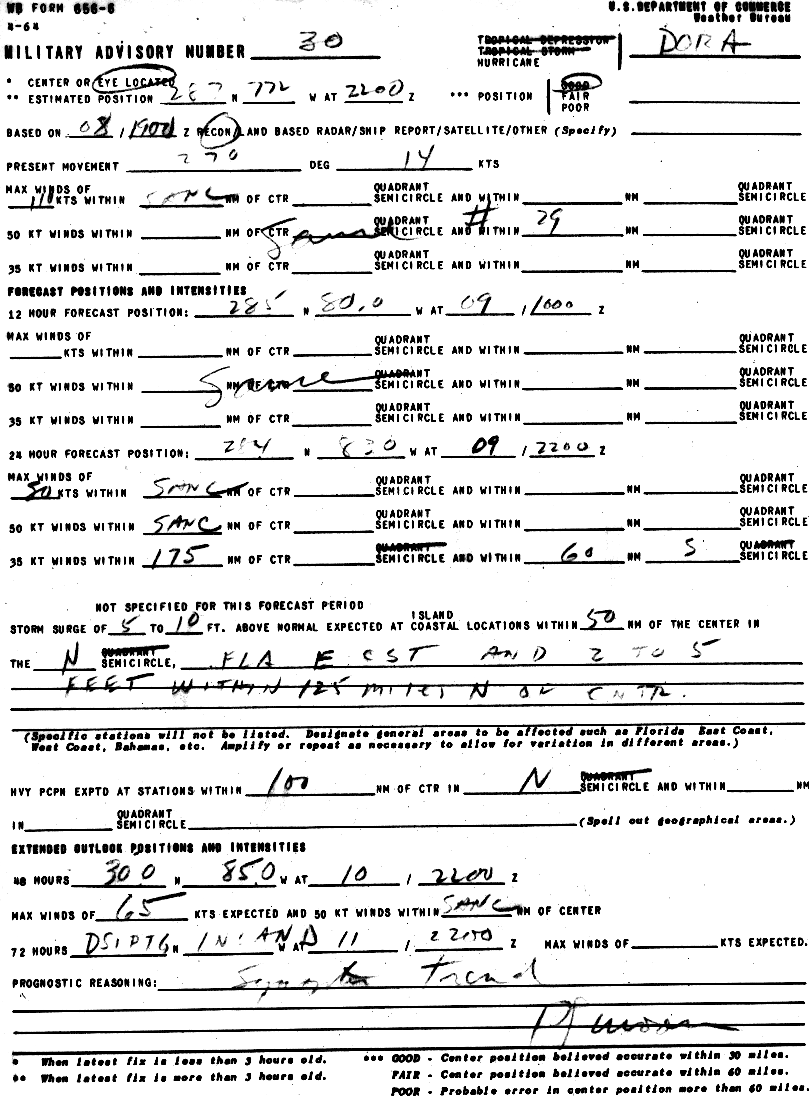 WB FORM 656-6 U.S. DEPARTMENT OF COMMERCE
4-64 Weather Bureau
MILITARY ADVISORY NUMBER 30 TROPICAL DEPRESSION DORA
TROPICAL STORM
HURRICANE
* CENTER OR EYE LOCATED
** ESTIMATED POSITION 287 N 772 W AT 2200 Z *** POSITION GOOD
FAIR
POOR
BASED ON 08 / 1900 Z RECON/LAND BASED RADAR/SHIP REPORT/SATELLITE/OTHER (Specify)
PRESENT MOVEMENT 270 DEG 14 KTS
MAX WINDS OF QUADRANT QUADRANT
110 KTS WITHIN SAME NM OF CTR SEMICIRCLE AND WITHIN NM SEMICIRCLE
QUADRANT QUADRANT
50 KT WINDS WITHIN NM OF CTR Same SEMICIRCLE AND WITHIN # 29 NM SEMICIRCLE
QUADRANT QUADRANT
35 KT WINDS WITHIN NM OF CTR SEMICIRCLE AND WITHIN NM SEMICIRCLE
FORECAST POSITIONS AND INTENSITIES
12 HOUR FORECAST POSITION: 285 N 80.0 W AT 09 / 1000 Z
MAX WINDS OF QUADRANT QUADRANT
KTS WITHIN NM OF CTR SEMICIRCLE AND WITHIN NM SEMICIRCLE
QUADRANT QUADRANT
50 KT WINDS WITHIN Same NM OF CTR SEMICIRCLE AND WITHIN NM SEMICIRCLE
QUADRANT QUADRANT
35 KT WINDS WITHIN NM OF CTR SEMICIRCLE AND WITHIN NM SEMICIRCLE
24 HOUR FORECAST POSITION: 284 N 830 W AT 09 / 2200 Z
MAX WINDS OF QUADRANT QUADRANT
50 KTS WITHIN SAME NM OF CTR SEMICIRCLE AND WITHIN NM SEMICIRCLE
QUADRANT QUADRANT
50 KT WINDS WITHIN SAME NM OF CTR SEMICIRCLE AND WITHIN NM SEMICIRCLE
QUADRANT QUADRANT
35 KT WINDS WITHIN 175 NM OF CTR SEMICIRCLE AND WITHIN 60 NM S SEMICIRCLE
NOT SPECIFIED FOR THIS FORECAST PERIOD
ISLAND
STORM SURGE OF 5 TO 10 FT. ABOVE NORMAL EXPECTED AT COASTAL LOCATIONS WITHIN 50 NM OF THE CENTER IN
QUADRANT
THE N SEMICIRCLE, FLA E CST AND 2 TO 5
FEET WITHIN 125 MILES N OF CNTR.
(Specific stations will not be listed. Designate general areas to be affected such as Florida East Coast,
West Coast, Bahamas, etc. Amplify or repeat as necessary to allow for variation in different areas.)
QUADRANT
HVY PCPN EXPTD AT STATIONS WITHIN 100 NM OF CTR IN N SEMICIRCLE AND WITHIN NM
QUADRANT
IN SEMICIRCLE (Spell out geographical areas.)
EXTENDED OUTLOOK POSITIONS AND INTENSITIES
48 HOURS 30.0 N 85.0 W AT 10 / 2200 Z
MAX WINDS OF 65 KTS EXPECTED AND 50 KT WINDS WITHIN SAME NM OF CENTER
72 HOURS DSIPTG N INLAND W AT 11 / 2200 Z MAX WINDS OF KTS EXPECTED.
PROGNOSTIC REASONING: Trend
* When latest fix is less than 3 hours old. *** GOOD - Center position believed accurate within 30 miles.
** When latest fix is more than 3 hours old. FAIR - Center position believed accurate within 60 miles.
POOR - Probable error in center position more than 60 miles.